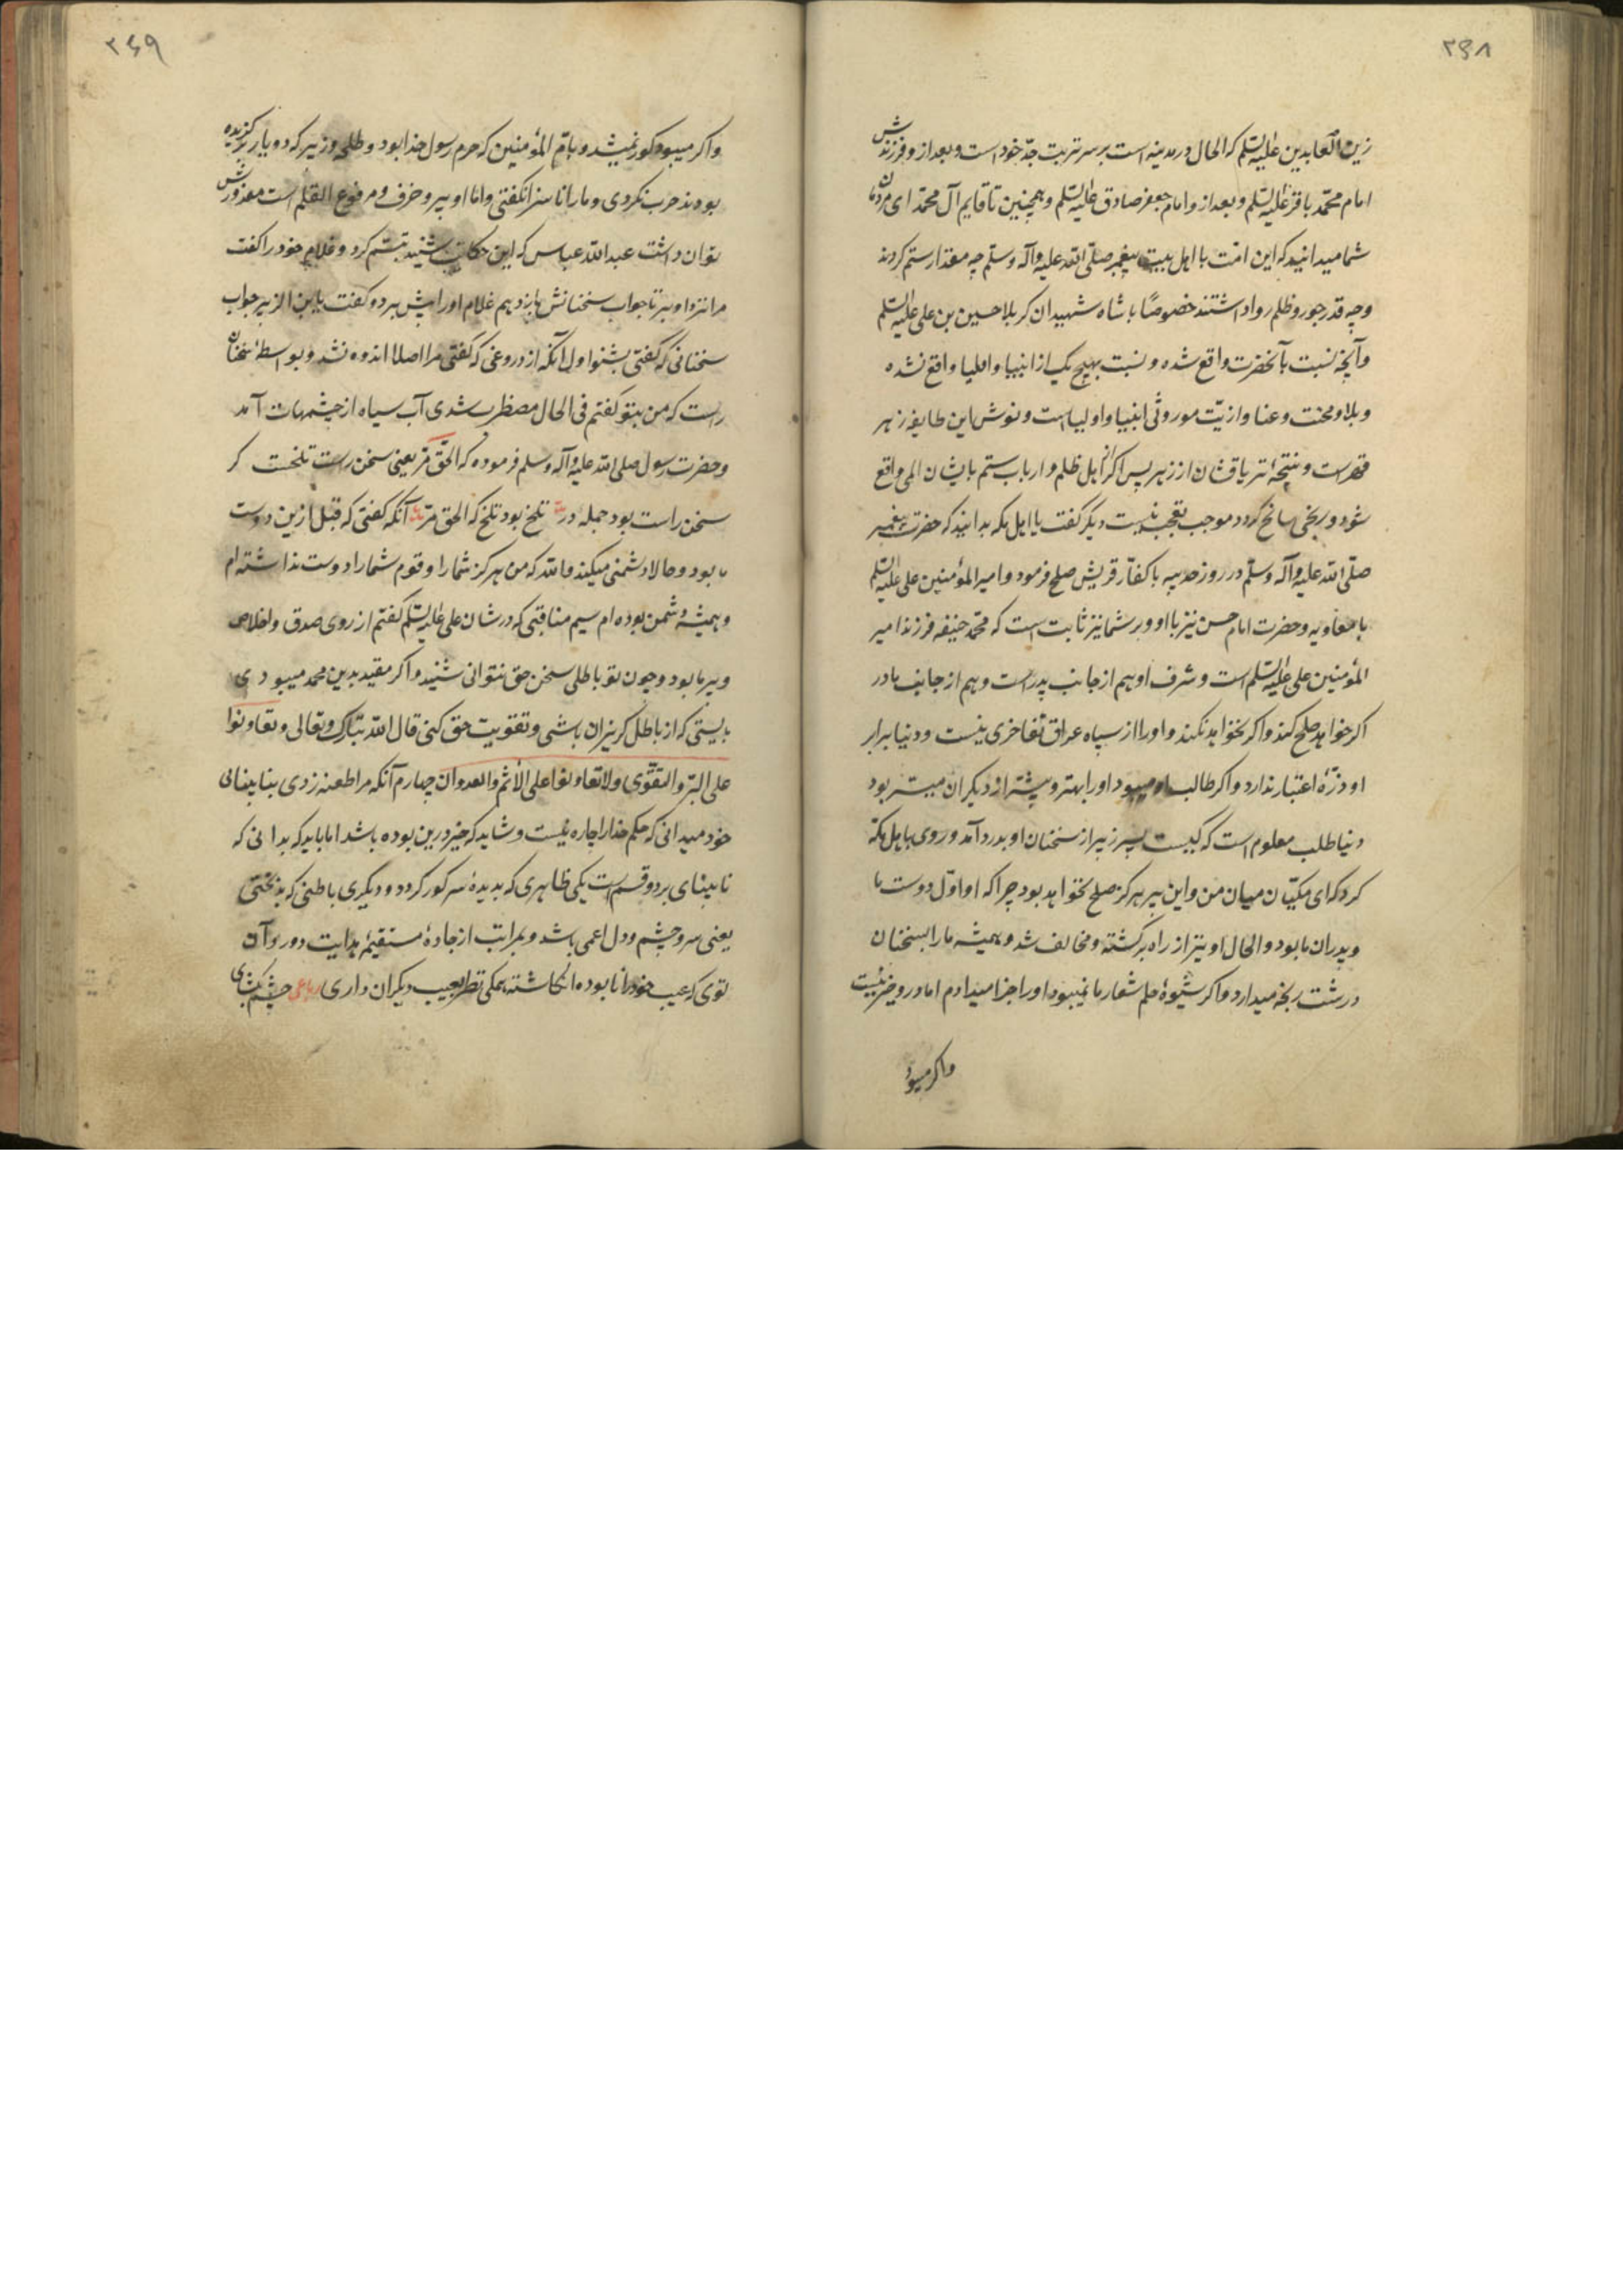 ۲۶۸
زین العابدین علیه السلم که الحال در مدینه است بر سر تربت جدّ خود است و بعد ازو فرزندش
امام محمّد باقر علیه السلم و بعد ازو امام جعفر صادق علیه السلم و همچنین تا قایم آل محمّد ای مردمان
شما میدانید که این امّت با اهل بیت پیغمبر صلّی الله علیه وآله وسلّم چه مقدار ستم کردند
وچه قدر جور وظلم روا داشتند خصوصًا با شاه شهیدان کربلا حسین بن علی علیه السلم
وآنچه نسبت بآنحضرت واقع شده و نسبت بهیچ یک از انبیا و اولیا واقع نشده
وبلا ومحنت وعنا واذیّت موروثی انبیا و اولیا است ونوش این طایفه زهر
قهرست ونتیجه تریاقشان از زهر پس اگر از اهل ظلم و ارباب ستم بایشان المی واقع
شود و رنجی سانح گردد موجب تعجب نیست دیگر گفت یا اهل مکه بدانید که حضرت پیغمبر
صلّی الله علیه وآله وسلّم در روز حدیبیه با کفّار قریش صلح فرمود و امیر المؤمنین علی علیه السلم
با معاویه و حضرت امام حسن نیز با او و بر شما نیز ثابت است که محمّد حنیفه فرزند امیر
المؤمنین علی علیه السلم است و شرف او هم از جانب پدر است و هم از جانب مادر
اگر خواهد صلح کند واگر نخواهد نکند و او را از سپاه عراق تفاخری نیست و دنیا برابر
او ذرّه اعتبار ندارد و اگر طالب او میبود او را بهتر و پیشتر از دیگران میسّر بود
دنیا طلب معلوم است که کیست پسر زبیر از سخنان او بدرد آمد و روی باهل مکّه
کرد که ای مکّیان میان من و این پیر هرگز صلح نخواهد بود چرا که او اوّل دوست ما
و پدران ما بود و الحال او نیز از راه برگشته ومخالف شد و همیشه ما را بسخنان
درشت رنجه میدارد و اگر شیوهٔ حلم شعار ما نمیبود او را جزا میدادم اما درو خیر نیست
واگر میبود
۲۶۹
واگر میبود کور نمیشد و بامّ المؤمنین که حرم رسول خدا بود و طلحه وزبیر که دو یار برگزیده
بودند حرب نکردی و ما را ناسزا نگفتی و امّا او پیر و خرف و مرفوع القلم است معذورش
توان داشت عبدالله عباس که این حکایت شنید تبسّم کرد و غلام خود را گفت
مرا نزد او بر تا جواب سخنانش باز دهم غلام او را پیش برد و گفت یا بن الزبیر جواب
سخنانی که گفتی بشنو اول آنکه از دروغی که گفتی مرا اصلا اندوه نشد و بواسطهٔ سخنان
راست که من بتو گفتم فی الحال مضطرب شدی آب سیاه از چشمهات آمد
وحضرت رسول صلی الله علیه وآله وسلم فرموده که الحقّ مرّ یعنی سخن راست تلخست گر
سخن راست بود جمله درّ تلخ بود تلخ که الحق مرّ آنکه گفتی که قبل ازین دوست
ما بود و حالا دشمنی میکند والله که من هرگز شما را و قوم شما را دوست نداشته‌ام
و همیشه دشمن بوده‌ام سیم مناقبی که در شان علی علیه السلم گفتم از روی صدق و اخلاص
وبیریا بود و چون تو باطلی سخن حق نتوانی شنید و اگر مقید بدین محمد میبودی
بایستی که از باطل گریزان باشی و تقویت حق کنی قال الله تبارک وتعالی وتعاونوا
علی البرّ والتقوی ولا تعاونوا علی الأثم والعدوان چهارم آنکه مرا طعنه زدی بنابینائی
خود میدانی که حکم خدا را چاره نیست و شاید که خیر درین بوده باشد اما باید که بدانی که
نابینای بر دو قسم است یکی ظاهری که بدیدهٔ سر کور گردد و دیگری باطنی که بدبختی
یعنی سر وچشم و دل اعمی باشد و بمراتب از جادهٔ مستقیمهٔ هدایت دور و آن
توی که عیب خود را نابوده انگاشته همگی نظر بعیب دیگران داری رباعی چشم بگشای